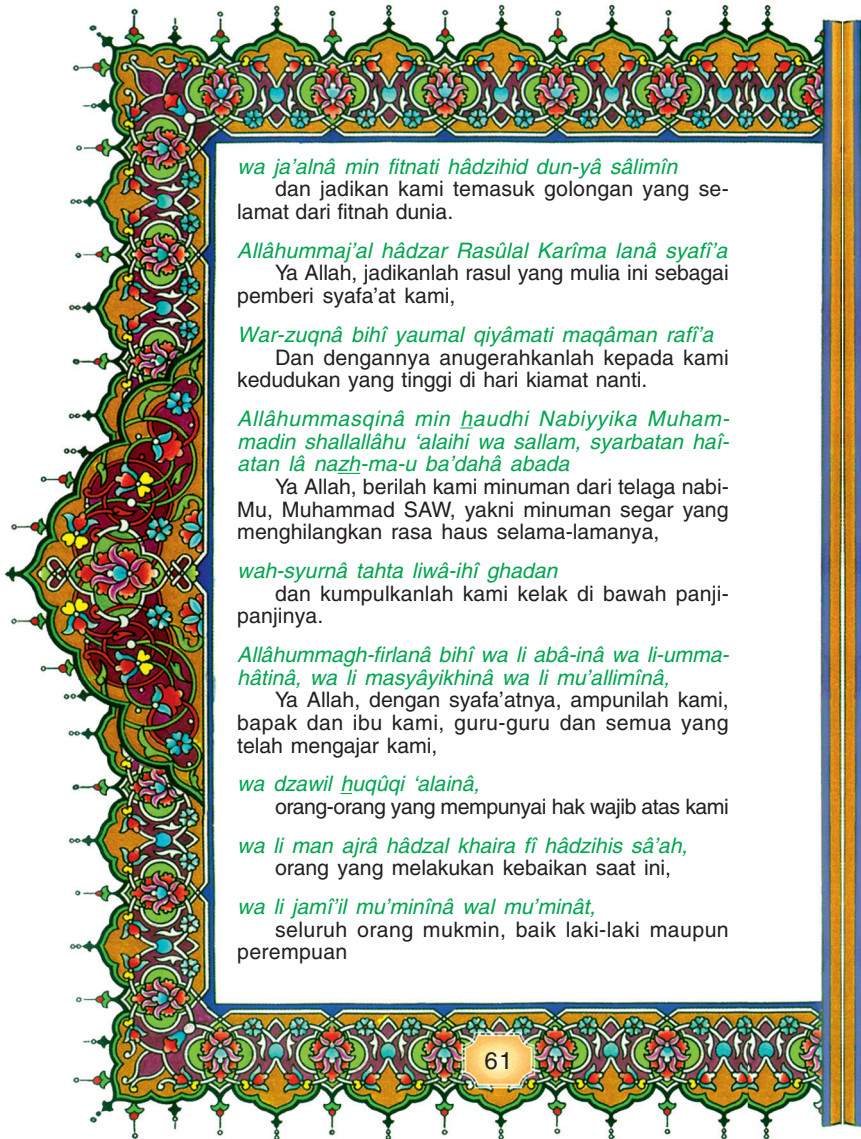 wa ja’alnâ min fitnati hâdzihid dun-yâ sâlimîn
dan jadikan kami temasuk golongan yang se-
lamat dari fitnah dunia.
Allâhummaj’al hâdzar Rasûlal Karîma lanâ syafî’a
Ya Allah, jadikanlah rasul yang mulia ini sebagai
pemberi syafa’at kami,
War-zuqnâ bihî yaumal qiyâmati maqâman rafî’a
Dan dengannya anugerahkanlah kepada kami
kedudukan yang tinggi di hari kiamat nanti.
Allâhummasqinâ min haudhi Nabiyyika Muham-
madin shallallâhu ‘alaihi wa sallam, syarbatan haî-
atan lâ nazh-ma-u ba’dahâ abada
Ya Allah, berilah kami minuman dari telaga nabi-
Mu, Muhammad SAW, yakni minuman segar yang
menghilangkan rasa haus selama-lamanya,
wah-syurnâ tahta liwâ-ihî ghadan
dan kumpulkanlah kami kelak di bawah panji-
panjinya.
Allâhummagh-firlanâ bihî wa li abâ-inâ wa li-umma-
hâtinâ, wa li masyâyikhinâ wa li mu’allimînâ,
Ya Allah, dengan syafa’atnya, ampunilah kami,
bapak dan ibu kami, guru-guru dan semua yang
telah mengajar kami,
wa dzawil huqûqi ‘alainâ,
orang-orang yang mempunyai hak wajib atas kami
wa li man ajrâ hâdzal khaira fî hâdzihis sâ’ah,
orang yang melakukan kebaikan saat ini,
wa li jamî’il mu’minînâ wal mu’minât,
seluruh orang mukmin, baik laki-laki maupun
perempuan
61